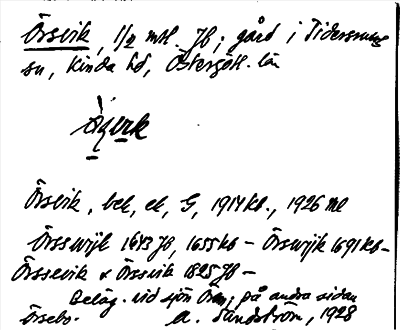 Örsvik, 1/2 mtl. Jb; gård i Tidersrums
sn, Kinda hd, Östergötl. län
Örsvik, bek, ek, G, 1914 kb., 1926 me
Örsswijk 1643 Jb, 1655 kb – Örswijk 1691 kb –
Örssevik & Örssvik 1825 Jb –
Beläg. vid sjön Ören, på andra sidan
Örsebo. A. Sundström, 1928